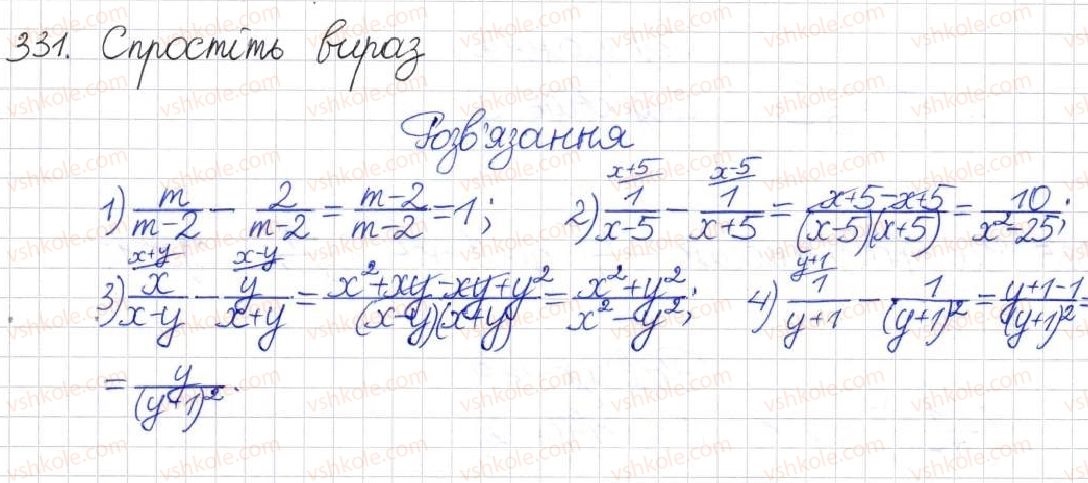 331. Спростіть вираз
Розв'язання
1) m/(m-2) - 2/(m-2) = (m-2)/(m-2) = 1; 2) 1/(x-5) (x+5) - 1/(x+5) (x-5) = (x+5-x+5)/((x-5)(x+5)) = 10/(x²-25);
3) x/(x-y) (x+y) - y/(x+y) (x-y) = (x²+xy-xy+y²)/((x-y)(x+y)) = (x²+y²)/(x²-y²); 4) 1/(y+1) (y+1) - 1/(y+1)² = (y+1-1)/(y+1)² =
= y/(y+1)².